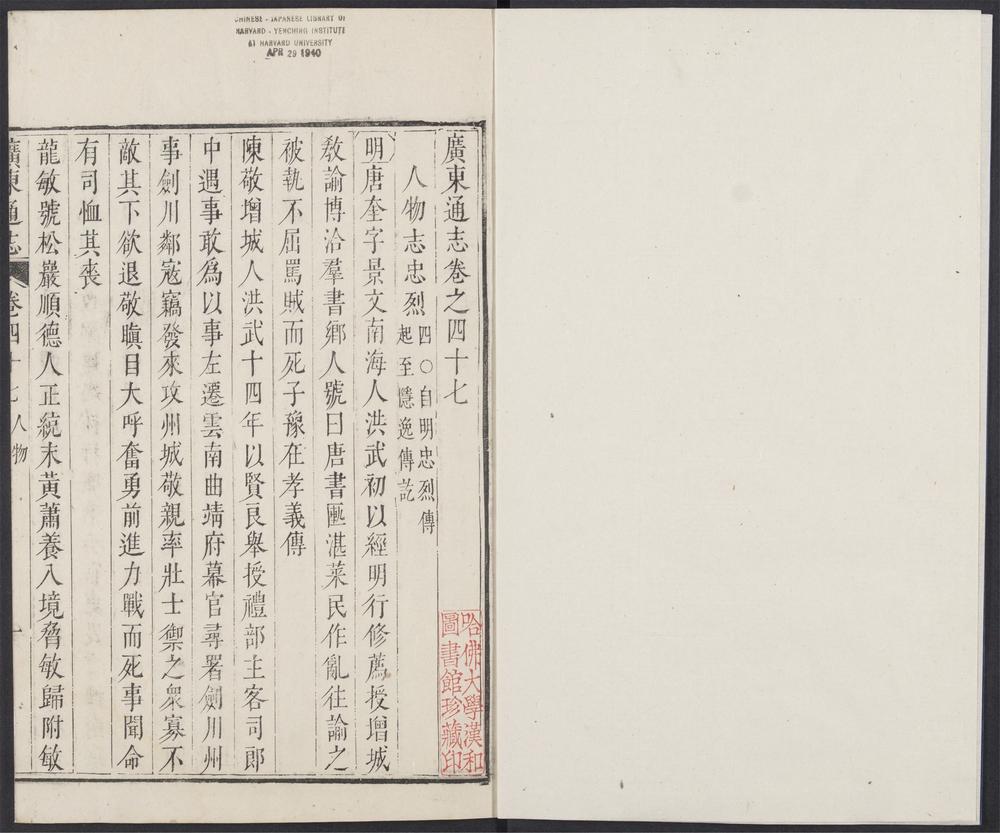 CHINESE - JAPANESE LIBRARY OF
HARVARD - YENCHING INSTITUTE
AT HARVARD UNIVERSITY
APR 29 1940
廣東通志卷之四十七
人物志忠烈四○自明忠烈傳
起至隱逸傳訖
明唐奎字景文南海人洪武初以經明行修薦授增城
教諭博洽羣書鄉人號曰唐書匭湛菜民作亂往諭之
被執不屈罵賊而死子豫在孝義傳
陳敬增城人洪武十四年以賢良舉授禮部主客司郎
中遇事敢爲以事左遷雲南曲靖府幕官尋署劍川州
事劍川鄰寇竊發來攻州城敬親率壯士禦之衆寡不
敵其下欲退敬瞋目大呼奮勇前進力戰而死事聞命
有司恤其喪
龍敏號松巖順德人正統末黃蕭養入境脅敏歸附敏
廣東通志
卷四十七人物
一
哈佛大學漢和
圖書館珍藏印